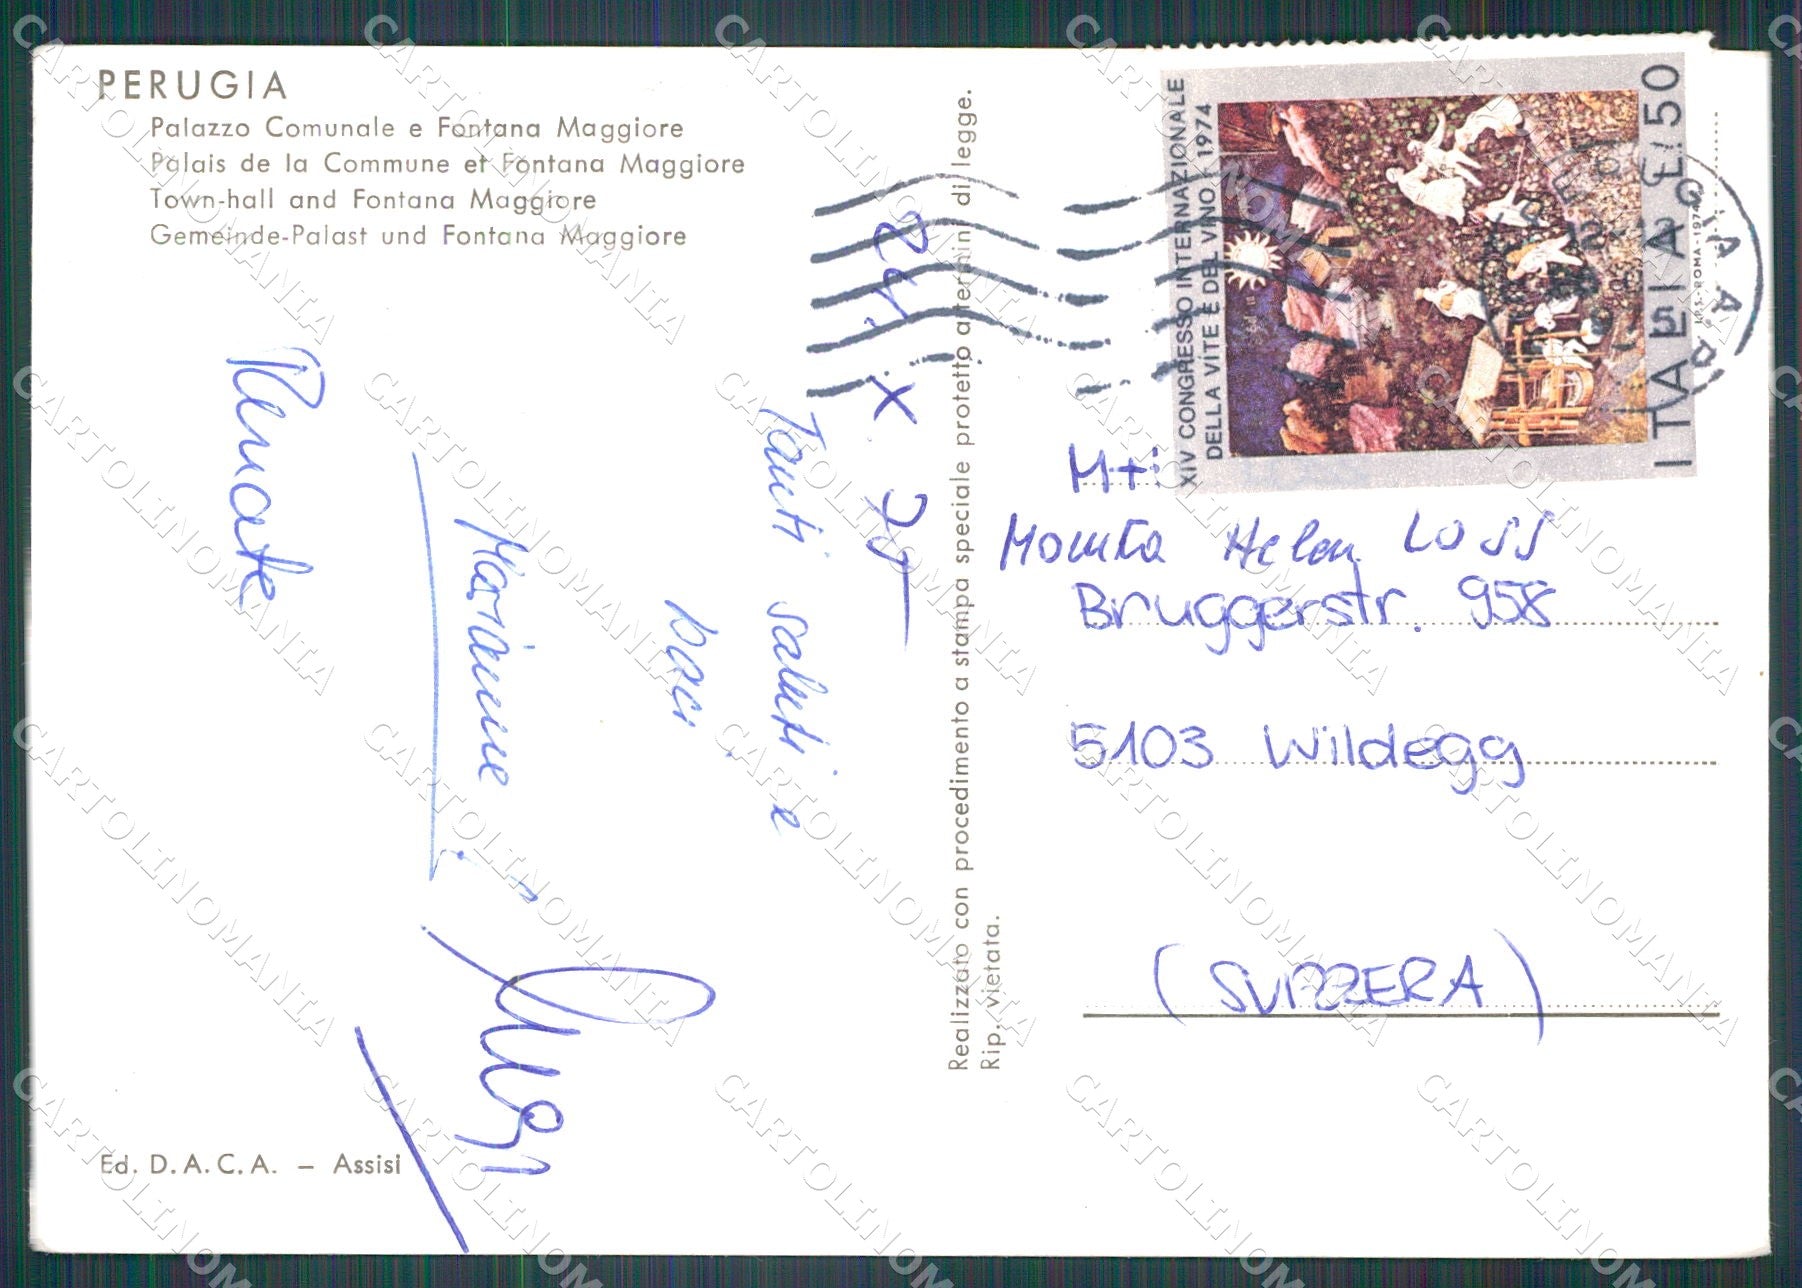 PERUGIA
Palazzo Comunale e Fontana Maggiore
Palais de la Commune et Fontana Maggiore
Town-hall and Fontana Maggiore
Gemeinde-Palast und Fontana Maggiore
24. X 75
Tanti saluti e
baci
Marianne
Renate
Ed. D.A.C.A. – Assisi
Realizzato con procedimento a stampa speciale protetto a termini di legge.
Rip. vietata.
XIV CONGRESSO INTERNAZIONALE
DELLA VITE E DEL VINO 1974
ITALIA L. 50
I.P.S.-ROMA-1974
Monika Helen Loss
Bruggerstr. 958
5103 Wildegg
(SVIZZERA)
CARTOLINOMANIA